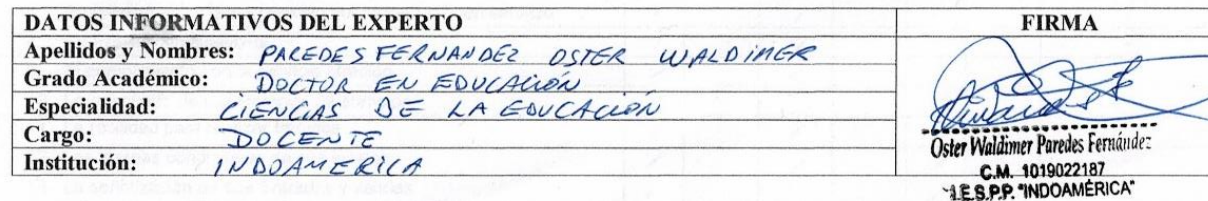 DATOS INFORMATIVOS DEL EXPERTO
FIRMA
Apellidos y Nombres: PAREDES FERNANDEZ OSTER WALDIMER
Grado Académico: DOCTOR EN EDUCACIÓN
Especialidad: CIENCIAS DE LA EDUCACIÓN
Cargo: DOCENTE
Institución: INDOAMERICA
Oster Waldimer Paredes Fernández
C.M. 1019022187
I.E.S.P.P. "INDOAMÉRICA"